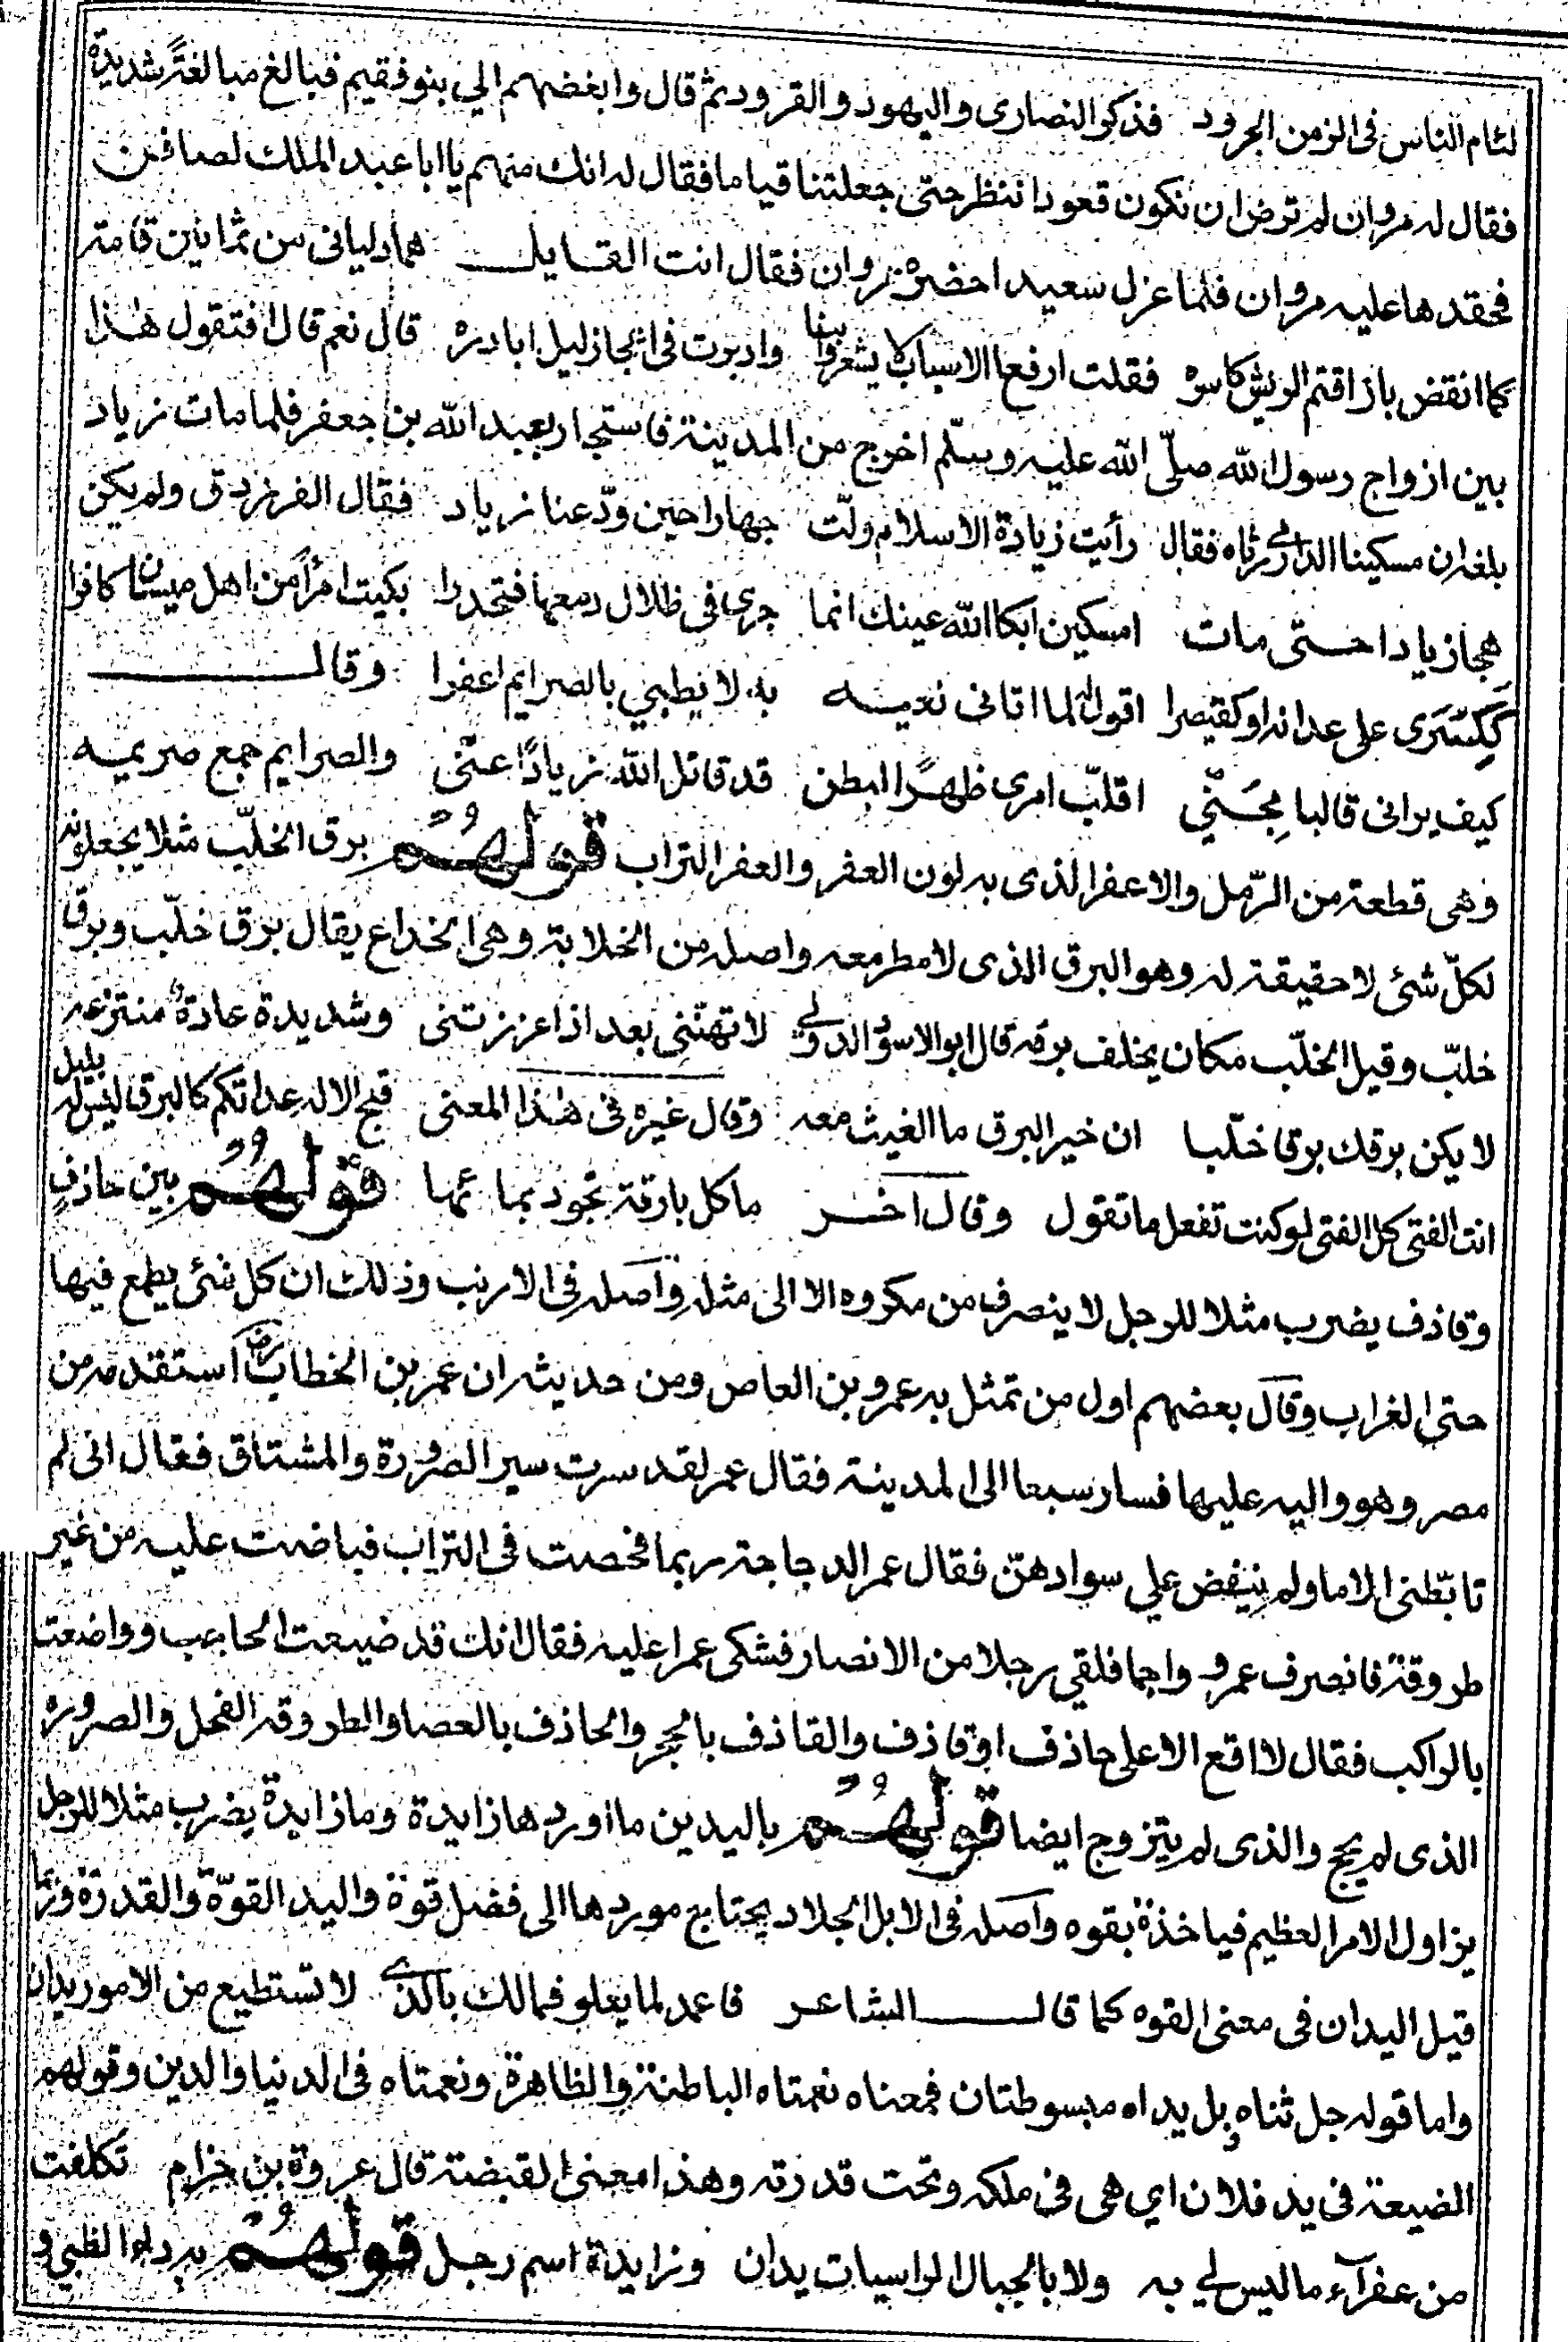 لئام الناس فى الزمن الجرود فذكر النصارى واليهود والقرود ثم قال وابغضهم الي بنو فقيم فبالغ مبالغة شديدة
فقال له مروان لم ترض ان نكون قعودا ننظر حتى جعلتنا قياما فقال له انك منهم يا ابا عبد الملك لصافن
فحقدها عليه مروان فلما عزل سعيد احضره مروان فقال انت القايل هما دليانى من ثمانين قامة
كما انقض باز اقتم الريش كاسره فقلت ارفعا الاسباب لا يشعروا بنا وادبرت فى اعجاز ليل ابادره قال نعم قال افتقول هذا
بين ازواج رسول الله صلى الله عليه وسلم اخرج من المدينة فاستجار بعبد الله بن جعفر فلما مات زياد
بلغه ان مسكينا الدارمي رثاه فقال رأيت زيادة الاسلام ولّت جهارا حين ودّعنا زياد فقال الفرزدق ولم يكن
هجا زيادا حتى مات امسكين ابكا الله عينك انما جرى فى ظلال دمعها فتحدرا بكيت امرأ من اهل ميسان كافرا
ككسرى على عدانه او كقيصرا اقول له لما اتانى نعيه به لا بظبي بالصرايم اعفرا وقال
كيف يرانى قالبا مجنّي اقلّب امرى ظهرًا لبطن قد قاتل الله زيادًا عنّى والصرايم جمع صريمه
وهى قطعة من الرّمل والاعفر الذى به لون العفر والعفر التراب قولهُم برق الخلّب مثلا يجعلونه
لكلّ شئ لا حقيقة له وهو البرق الذى لا مطر معه واصله من الخلابة وهى الخداع يقال برق خلّب وبرق
خلبّ وقيل الخلّب مكان يخلف برقه قال ابو الاسود الدولي لا تهنّنى بعد اذ اعززتنى وشديدة عادة منتزعه
لا يكن برقك برقا خلّبا ان خير البرق ما الغيث معه وقال غيره فى هذا المعنى قبح الاله عداتكم كالبرق ليس له بليل
انت الفتى كل الفتى لو كنت تفعل ما تقول وقال اخر ما كل بارقة تجود بمائها قولهُم بين حاذف
وقاذف يضرب مثلا للرجل لا ينصرف من مكروه الا الى مثله واصله فى الارنب وذلك ان كل شئ يطمع فيها
حتى الغراب وقال بعضهم اول من تمثل به عمرو بن العاص ومن حديثه ان عمر بن الخطاب رض استقدمه من
مصر وهو واليه عليها فسار سبعا الى المدينة فقال عمر لقد سرت سير الضرورة والمشتاق فقال انى لم
تابّطنى الاما ولم ينفض علي سوادهنّ فقال عمر الدجاجة ربما فحصت فى التراب فباضت عليه من غير
طروقة فانصرف عمرو واجما فلقي رجلا من الانصار فشكى عمرا عليه فقال انك قد ضيعت الحاجب وواضعت
بالراكب فقال لا اقع الا على حاذف او قاذف والقاذف بالحجر والحاذف بالعصا والطروقه الفحل والصروره
الذى لم يحج والذى لم يتزوج ايضا قولهُم باليدين ما اوردها زايدة وما زايدة يضرب مثلا للرجل
يزاول الامر العظيم فياخذه بقوه واصله فى الابل الجلاد يحتاج موردها الى فضل قوة واليد القوّة والقدرة وربما
قيل اليدان فى معنى القوه كما قال الشاعر فاعمد لما يعلو فمالك بالذي لا تستطيع من الامور يدان
واما قوله جل ثناه بل يداه مبسوطتان فمعناه نعمتاه الباطنة والظاهرة ونعمتاه فى الدنيا والدين وقولهم
الضيعة فى يد فلان اي هى فى ملكه وتحت قدرته وهذا معنى القبضة قال عروة بن حزام تكلفت
من عفرآء ما ليس لي به ولا بالجبال الراسيات يدان وزايدة اسم رجل قولهُم به داء الظبي و